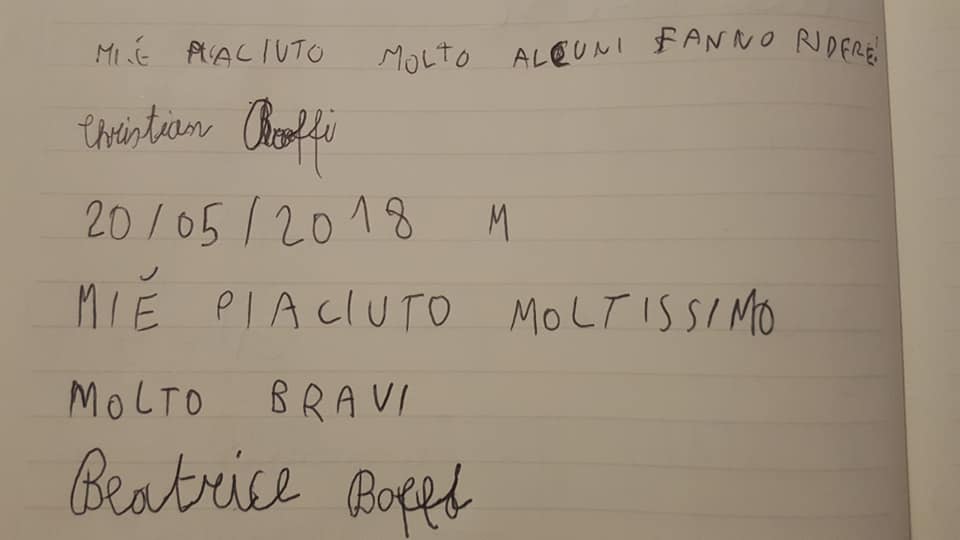 MI.É PIACIUTO MOLTO ALCUNI FANNO RIDERE!
Christian Boffi
20/05/2018 M
MIÉ PIACIUTO MOLTISSIMO
MOLTO BRAVI
Beatrice